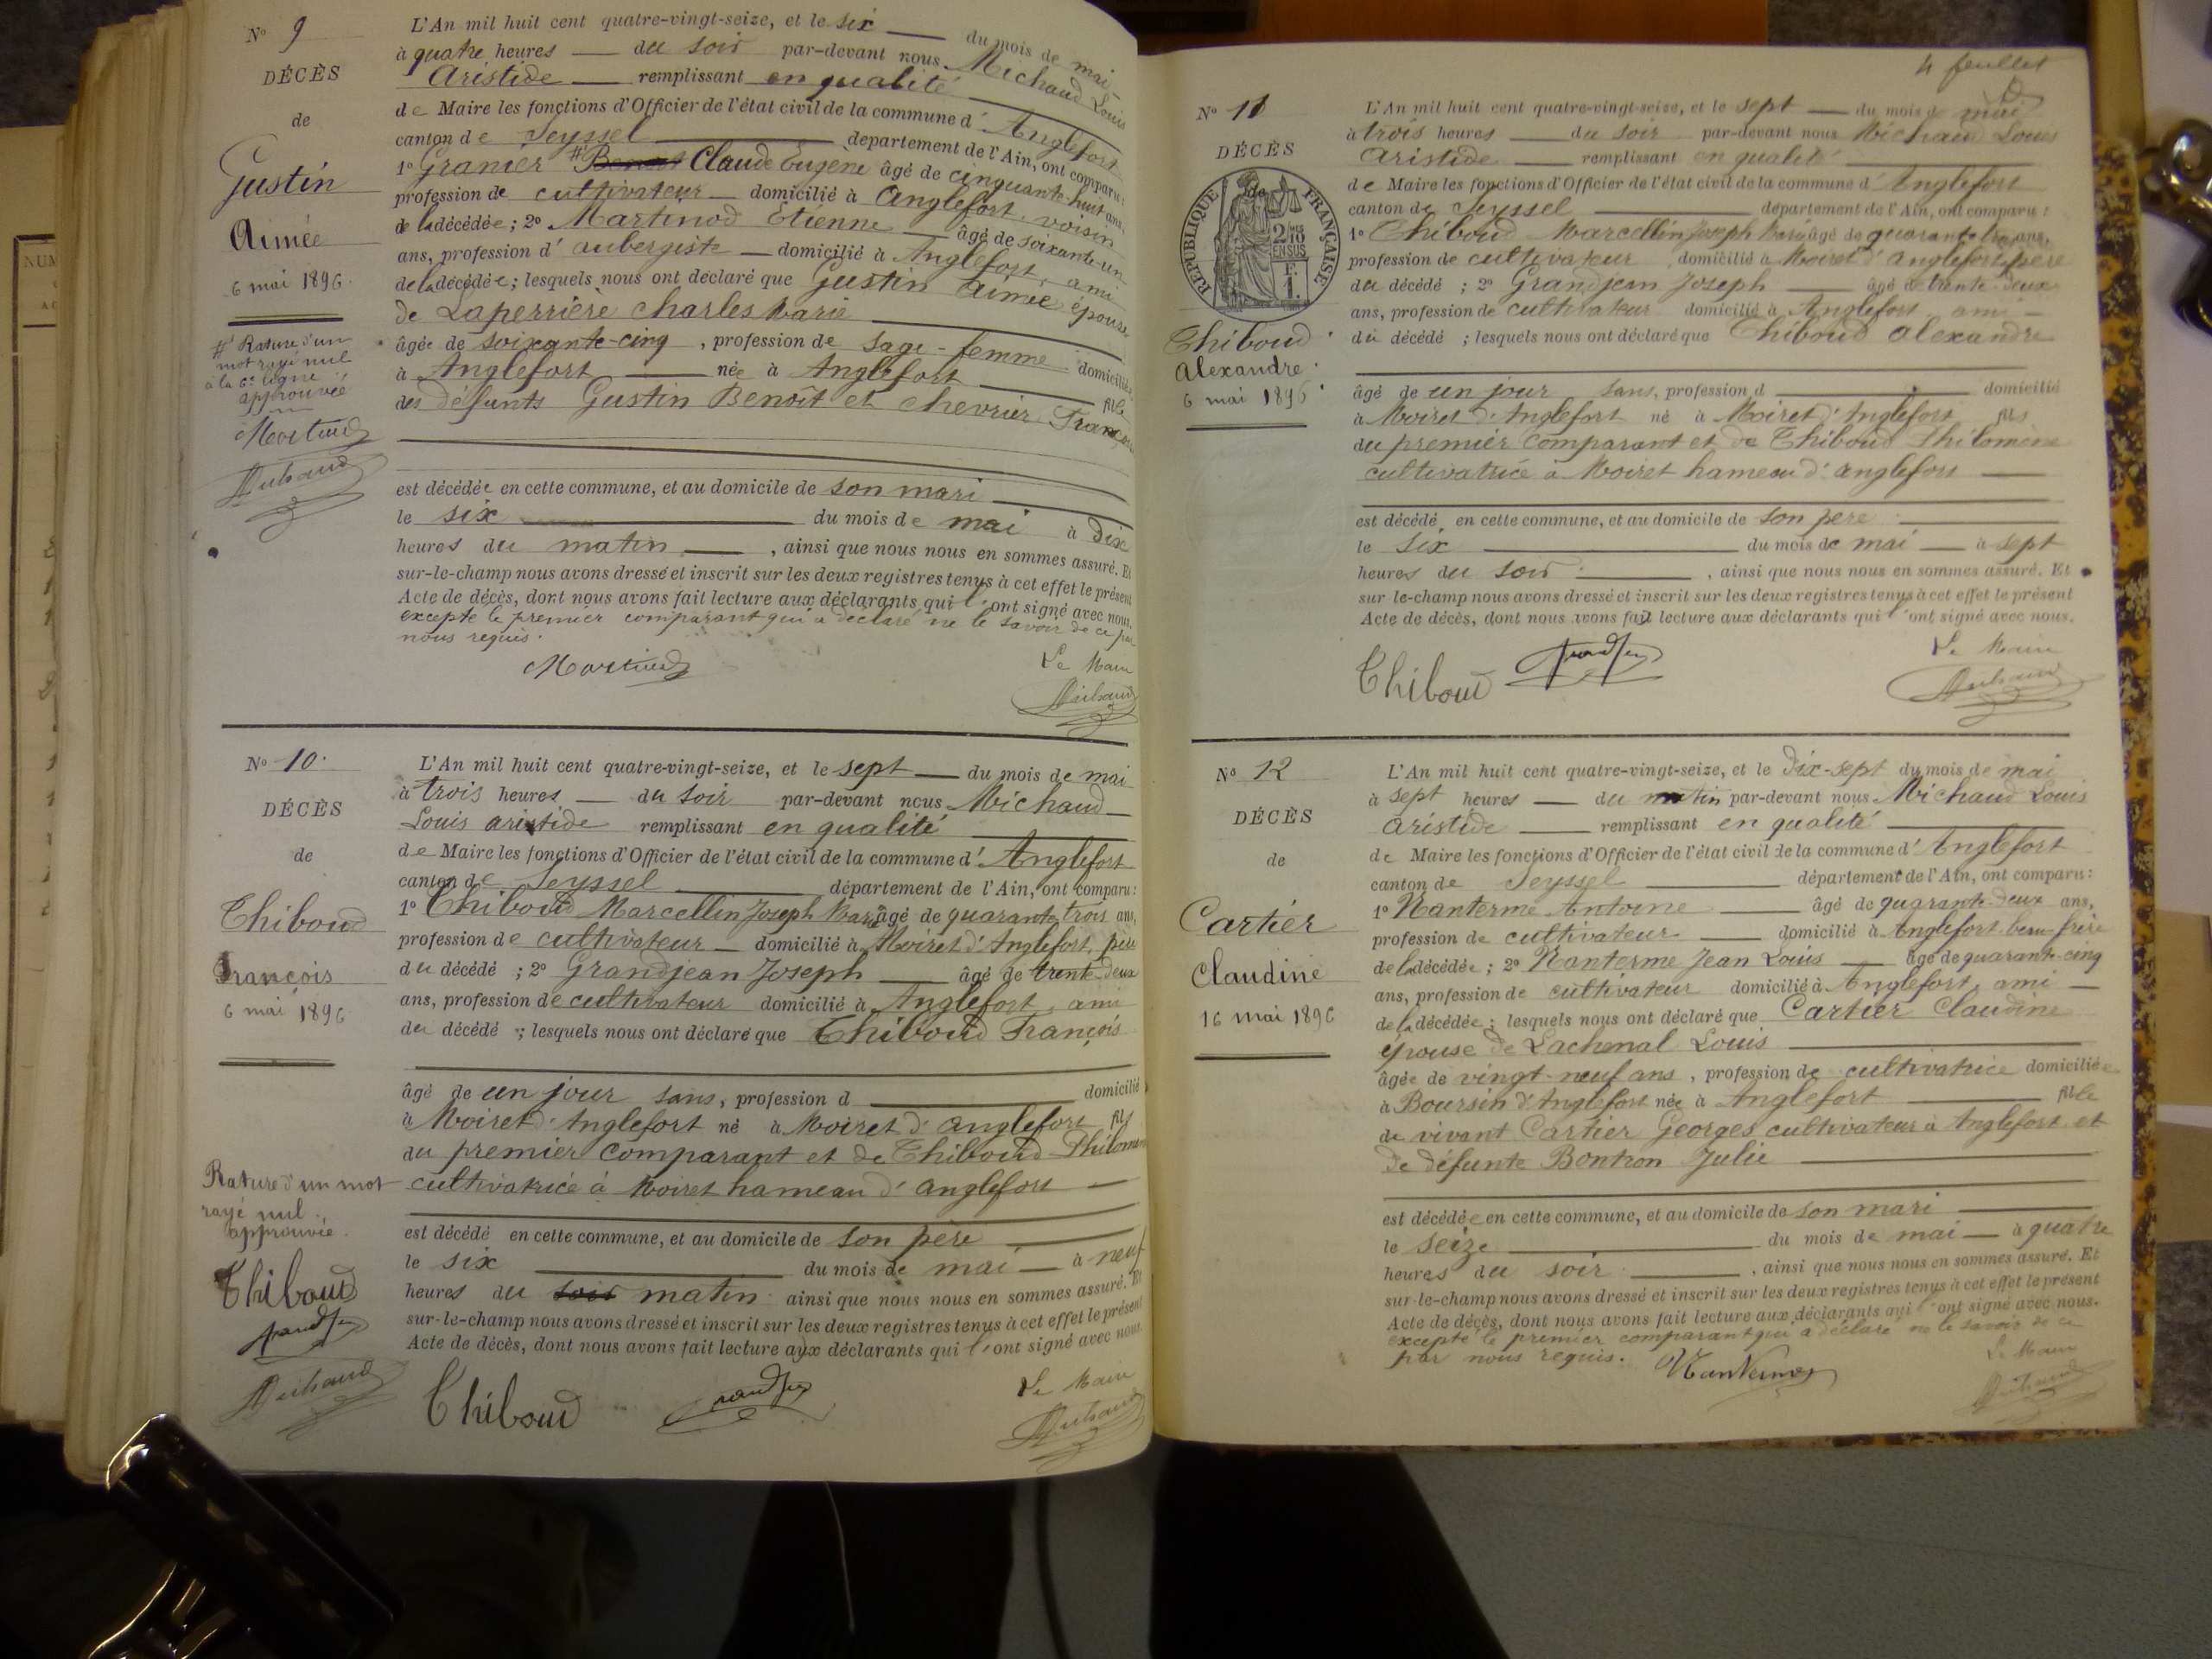 N° 9
DÉCÈS
de
Gustin
Aimée
6 mai 1896.
# Rature d'un
mot rayé nul
à la 6e ligne
approuvée
Martinod
Michaud
L'An mil huit cent quatre-vingt-seize, et le six du mois de mai
à quatre heures du soir par-devant nous Michaud Louis
Aristide remplissant en qualité
de Maire les fonctions d'Officier de l'état civil de la commune d'Anglefort
canton de Seyssel département de l'Ain, ont comparu:
1° Granier # Benoit Claude Eugene âgé de cinquante-huit ans,
profession de cultivateur domicilié à Anglefort, voisin
de la décédée; 2° Martinod Etienne âgé de soixante-un
ans, profession d'aubergiste domicilié à Anglefort, ami
de la décédée; lesquels nous ont déclaré que Gustin Aimée épouse
de Laperrière Charles Marie
âgée de soixante-cinq, profession de sage-femme domiciliée
à Anglefort née à Anglefort fille
des défunts Gustin Benoît et Chevrier Françoise
est décédée en cette commune, et au domicile de son mari
le six du mois de mai à dix
heures du matin, ainsi que nous nous en sommes assuré. Et
sur-le-champ nous avons dressé et inscrit sur les deux registres tenus à cet effet le présent
Acte de décès, dont nous avons fait lecture aux déclarants qui l'ont signé avec nous.
excepté le premier comparant qui a déclaré ne le savoir de ce par
nous requis.
Martinod
Le Maire
Michaud
N° 10.
DÉCÈS
de
Thiboud
François
6 mai 1896
Rature d'un mot
rayé nul
approuvée.
Thiboud
Grandjean
Michaud
L'An mil huit cent quatre-vingt-seize, et le sept du mois de mai
à trois heures du soir par-devant nous Michaud
Louis aristide remplissant en qualité
de Maire les fonctions d'Officier de l'état civil de la commune d'Anglefort
canton de Seyssel département de l'Ain, ont comparu:
1° Thiboud Marcellin Joseph Marie âgé de quarante trois ans,
profession de cultivateur domicilié à Moiret d'Anglefort, père
du décédé; 2° Grandjean Joseph âgé de trente-deux
ans, profession de cultivateur domicilié à Anglefort, ami
du décédé; lesquels nous ont déclaré que Thiboud François
âgé de un jour sans, profession d domicilié
à Moiret d'Anglefort né à Moiret d'anglefort fils
du premier comparant et de Thiboud Philomène
cultivatrice à Moiret hameau d'anglefort
est décédé en cette commune, et au domicile de son père
le six du mois de mai à neuf
heures du soir matin ainsi que nous nous en sommes assuré. Et
sur-le-champ nous avons dressé et inscrit sur les deux registres tenus à cet effet le présent
Acte de décès, dont nous avons fait lecture aux déclarants qui l'ont signé avec nous.
Thiboud
Grandjean
Le Maire
Michaud
4 feuillet
N° 11
DÉCÈS
de
RÉPUBLIQUE FRANÇAISE
2/10
EN SUS
Thiboud
Alexandre
6 mai 1896
L'An mil huit cent quatre-vingt-seize, et le sept du mois de mai
à trois heures du soir par-devant nous Michaud Louis
Aristide remplissant en qualité
de Maire les fonctions d'Officier de l'état civil de la commune d'Anglefort
canton de Seyssel département de l'Ain, ont comparu:
1° Thiboud Marcellin Joseph Marie âgé de quarante trois ans,
profession de cultivateur domicilié à Moiret d'anglefort, père
du décédé; 2° Grandjean Joseph âgé de trente-deux
ans, profession de cultivateur domicilié à Anglefort, ami
du décédé; lesquels nous ont déclaré que Thiboud Alexandre
âgé de un jour sans, profession d domicilié
à Moiret d'Anglefort né à Moiret d'Anglefort fils
du premier comparant et de Thiboud Philomène
cultivatrice à Moiret hameau d'anglefort
est décédé en cette commune, et au domicile de son père
le six du mois de mai à sept
heures du soir, ainsi que nous nous en sommes assuré. Et
sur-le-champ nous avons dressé et inscrit sur les deux registres tenus à cet effet le présent
Acte de décès, dont nous avons fait lecture aux déclarants qui l'ont signé avec nous.
Thiboud
Grandjean
Le Maire
Michaud
N° 12
DÉCÈS
de
Cartier
Claudine
16 mai 1896
L'An mil huit cent quatre-vingt-seize, et le dix-sept du mois de mai
à sept heures du matin par-devant nous Michaud Louis
aristide remplissant en qualité
de Maire les fonctions d'Officier de l'état civil de la commune d'Anglefort
canton de Seyssel département de l'Ain, ont comparu:
1° Nanterme Antoine âgé de quarante-deux ans,
profession de cultivateur domicilié à Anglefort beau-frère
de la décédée; 2° Nanterme Jean Louis âgé de quarante-cinq
ans, profession de cultivateur domicilié à Anglefort, ami
de la décédée; lesquels nous ont déclaré que Cartier Claudine
épouse de Lachenal Louis
âgée de vingt-neuf ans, profession de cultivatrice domiciliée
à Boursin d'Anglefort née à Anglefort fille
de vivant Cartier Georges cultivateur à Anglefort et
de défunte Bontron Julie
est décédée en cette commune, et au domicile de son mari
le seize du mois de mai à quatre
heures du soir, ainsi que nous nous en sommes assuré. Et
sur-le-champ nous avons dressé et inscrit sur les deux registres tenus à cet effet le présent
Acte de décès, dont nous avons fait lecture aux déclarants qui l'ont signé avec nous.
excepté le premier comparant qui a déclaré ne le savoir de ce
par nous requis.
Nanterme
Le Maire
Michaud